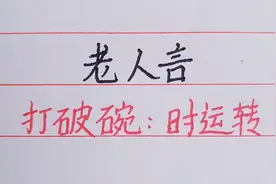 老人言
打破碗：时运转